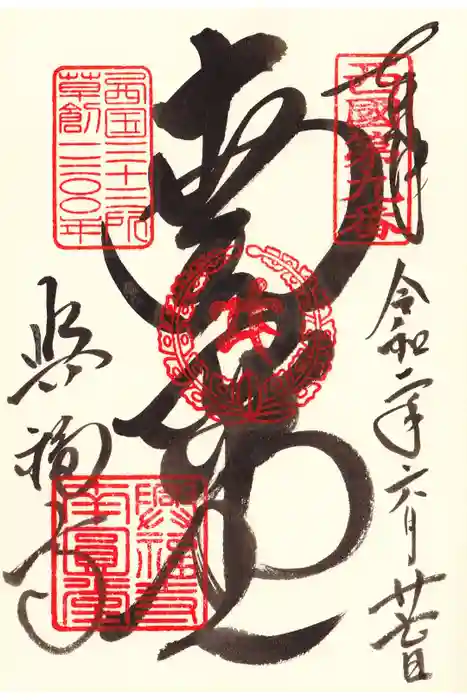 奉拝
西國第九番
令和二年六月廿七日
南圓堂
西国三十三所
草創一三〇〇年
興福寺
興福寺
南圓堂